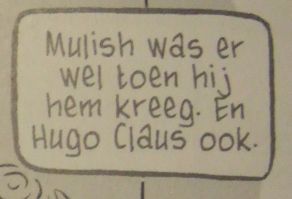 Mulish was er
wel toen hij
hem kreeg. En
Hugo Claus ook.